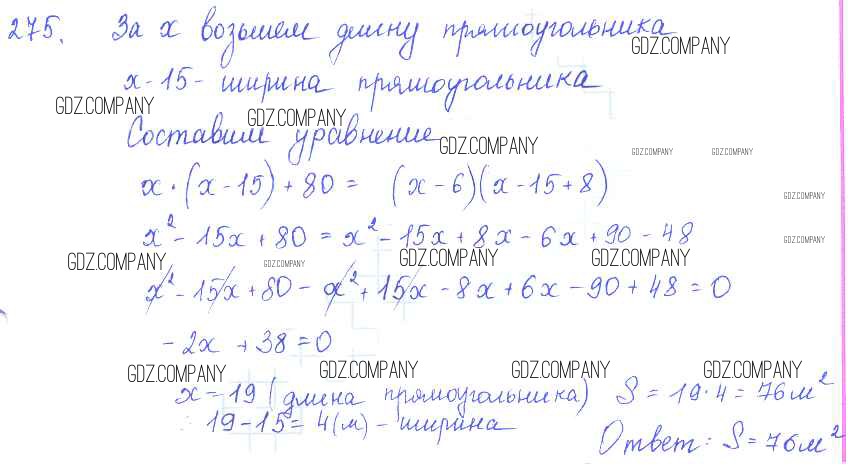 275. За x возьмем длину прямоугольника
GDZ.COMPANY
x - 15 - ширина прямоугольника
GDZ.COMPANY
GDZ.COMPANY
Составим уравнение
GDZ.COMPANY
GDZ.COMPANY
GDZ.COMPANY
x · (x - 15) + 80 = (x - 6)(x - 15 + 8)
GDZ.COMPANY
x² - 15x + 80 = x² - 15x + 8x - 6x + 90 - 48
GDZ.COMPANY
GDZ.COMPANY
GDZ.COMPANY
GDZ.COMPANY
GDZ.COMPANY
x² - 15x + 80 - x² + 15x - 8x + 6x - 90 + 48 = 0
- 2x + 38 = 0
GDZ.COMPANY
GDZ.COMPANY
GDZ.COMPANY
GDZ.COMPANY
x = 19 (длина прямоугольника) S = 19 · 4 = 76 м²
19 - 15 = 4 (м) - ширина
Ответ: S = 76 м²